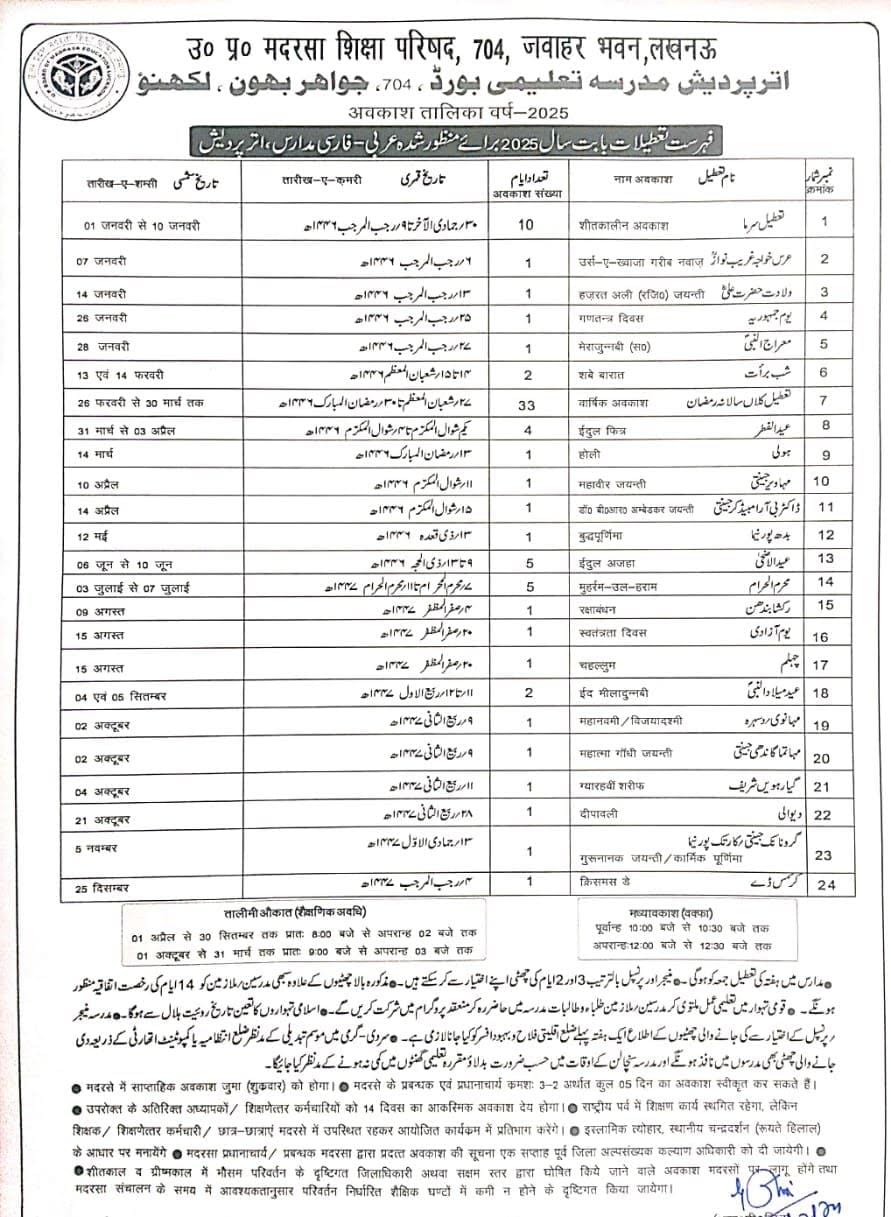 उ० प्र० मदरसा शिक्षा परिषद, 704, जवाहर भवन,लखनऊ
اترپردیش مدرسہ تعلیمی بورڈ ، 704، جواهر بھون ، لکھنؤ
अवकाश तालिका वर्ष–2025
فہرست تعطیلات بابت سال 2025 برائے منظور شدہ عربی - فارسی مدارس، اتر پردیش
तारीख-ए-शम्सी تاریخ شمسی तारीख-ए-कमरी تاریخ قمری تعداد ایام अवकाश संख्या नाम अवकाश نام تعطیل نمبر شمار क्रमांक
01 जनवरी से 10 जनवरी ۳۰؍جمادی الآخر تا ۹؍رجب المرجب ۱۴۴۶ھ 10 शीतकालीन अवकाश تعطیل سرما 1
07 जनवरी ۶؍رجب المرجب ۱۴۴۶ھ 1 उर्स-ए-ख्वाजा गरीब नवाज़ عرس خواجہ غریب نوازؒ 2
14 जनवरी ۱۳؍رجب المرجب ۱۴۴۶ھ 1 हज़रत अली (रजि०) जयन्ती ولادت حضرت علیؓ 3
26 जनवरी ۲۵؍رجب المرجب ۱۴۴۶ھ 1 गणतन्त्र दिवस یوم جمہوریہ 4
28 जनवरी ۲۷؍رجب المرجب ۱۴۴۶ھ 1 मेराजुन्नबी (स०) معراج النبیؐ 5
13 एवं 14 फरवरी ۱۴ تا ۱۵؍شعبان المعظم ۱۴۴۶ھ 2 शबे बारात شب برأت 6
26 फरवरी से 30 मार्च तक ۲۷؍شعبان المعظم تا ۳۰؍رمضان المبارک ۱۴۴۶ھ 33 वार्षिक अवकाश تعطیل کلاں سالانہ رمضان 7
31 मार्च से 03 अप्रैल یکم شوال المکرم تا ۴؍شوال المکرم ۱۴۴۶ھ 4 ईदुल फित्र عید الفطر 8
14 मार्च ۱۳؍رمضان المبارک ۱۴۴۶ھ 1 होली ہولی 9
10 अप्रैल ۱۱؍شوال المکرم ۱۴۴۶ھ 1 महावीर जयन्ती مہاویر جینتی 10
14 अप्रैल ۱۵؍شوال المکرم ۱۴۴۶ھ 1 डॉ० बी०आर० अम्बेडकर जयन्ती ڈاکٹر بی آر امبیڈکر جینتی 11
12 मई ۱۳؍ذی قعدہ ۱۴۴۶ھ 1 बुद्धपूर्णिमा بدھ پورنیما 12
06 जून से 10 जून ۹ تا ۱۳؍ذی الحجہ ۱۴۴۶ھ 5 ईदुल अजहा عید الاضحیٰ 13
03 जुलाई से 07 जुलाई ۷؍محرم الحرام تا ۱۱؍محرم الحرام ۱۴۴۷ھ 5 मुहर्रम-उल-हराम محرم الحرام 14
09 अगस्त ۱۴؍صفر المظفر ۱۴۴۷ھ 1 रक्षाबंधन رکشا بندھن 15
15 अगस्त ۲۰؍صفر المظفر ۱۴۴۷ھ 1 स्वतंत्रता दिवस یوم آزادی 16
15 अगस्त ۲۰؍صفر المظفر ۱۴۴۷ھ 1 चहल्लुम چہلم 17
04 एवं 05 सितम्बर ۱۱ تا ۱۲؍ربیع الاول ۱۴۴۷ھ 2 ईद मीलादुन्नबी عید میلاد النبیؐ 18
02 अक्टूबर ۹؍ربیع الثانی ۱۴۴۷ھ 1 महानवमी/विजयादश्मी مہانومی؍دسہرہ 19
02 अक्टूबर ۹؍ربیع الثانی ۱۴۴۷ھ 1 महात्मा गाँधी जयन्ती مہاتما گاندھی جینتی 20
04 अक्टूबर ۱۱؍ربیع الثانی ۱۴۴۷ھ 1 ग्यारहवीं शरीफ گیارہویں شریف 21
21 अक्टूबर ۲۸؍ربیع الثانی ۱۴۴۷ھ 1 दीपावली دیوالی 22
5 नवम्बर ۱۳؍جمادی الاوّل ۱۴۴۷ھ 1 گرونانک جینتی؍کارتک پورنیما 23
गुरूनानक जयन्ती/कार्मिक पूर्णिमा
25 दिसम्बर ۴؍رجب المرجب ۱۴۴۷ھ 1 क्रिसमस डे کرسمس ڈے 24
तालीमी औकात (शैक्षणिक अवधि)
01 अप्रैल से 30 सितम्बर तक प्रातः 8:00 बजे से अपरान्ह 02 बजे तक
01 अक्टूबर से 31 मार्च तक प्रातः 9:00 बजे से अपरान्ह 03 बजे तक
मध्यावकाश (वक्फा)
पूर्वान्ह 10:00 बजे से 10:30 बजे तक
अपरान्ह:12:00 बजे से 12:30 बजे तक
●مدارس میں ہفتہ کی تعطیل جمعہ کو ہوگی۔ ●منیجر اور پرنسپل بالترتیب 3 اور 2 ایام کی چھٹی اپنے اختیار سے کر سکتے ہیں۔ ●مذکورہ بالا چھٹیوں کے علاوہ بھی مدرسین؍ملازمین کو 14 ایام کی رخصت اتفاقیہ منظور
ہونگے۔ ●قومی تہوار میں تعلیمی عمل ملتوی کر مدرسین؍ملازمین طلباء و طالبات مدرسہ میں حاضر رہ کر منعقد پروگرام میں شرکت کریں گے۔ ●اسلامی تہواروں کا تعین تاریخ روئیت ہلال سے ہوگا۔ ●مدرسہ منیجر
؍پرنسپل کے اختیار سے کی جانے والی چھٹیوں کے اطلاع ایک ہفتہ پہلے ضلع اقلیتی فلاح و بہبود افسر کو کیا جانا لازمی ہے۔ ●سردی-گرمی میں موسم تبدیلی کے مدنظر ضلع انتظامیہ یا کمپیٹنٹ اتھارٹی کے ذریعہ دی
جانے والی چھٹی بھی مدرسوں میں نافذ ہونگے اور مدرسہ سنچالن کے اوقات میں حسب ضرورت بدلاؤ مقررہ تعلیمی گھنٹوں میں کمی نہ ہونے کے مدنظر کیا جائیگا۔
● मदरसे में साप्ताहिक अवकाश जुमा (शुक्रवार) को होगा। ● मदरसे के प्रबन्धक एवं प्रधानाचार्य कमशः 3–2 अर्थात कुल 05 दिन का अवकाश स्वीकृत कर सकते हैं।
● उपरोक्त के अतिरिक्त अध्यापकों/ शिक्षणेत्तर कर्मचारियों को 14 दिवस का आकस्मिक अवकाश देय होगा। ● राष्ट्रीय पर्व में शिक्षण कार्य स्थगित रहेगा, लेकिन
शिक्षक/ शिक्षणेत्तर कर्मचारी/ छात्र-छात्राएं मदरसे में उपस्थित रहकर आयोजित कार्यकम में प्रतिभाग करेंगे। ● इस्लामिक त्योहार, स्थानीय चन्द्रदर्शन (रूयते हिलाल)
के आधार पर मनायेंगे ● मदरसा प्रधानाचार्य/ प्रबन्धक मदरसा द्वारा प्रदत्त अवकाश की सूचना एक सप्ताह पूर्व जिला अल्पसंख्यक कल्याण अधिकारी को दी जायेगी। ●
●शीतकाल व ग्रीष्मकाल में मौसम परिवर्तन के दृष्टिगत जिलाधिकारी अथवा सक्षम स्तर द्वारा घोषित किये जाने वाले अवकाश मदरसों पर लागू होंगे तथा
मदरसा संचालन के समय में आवश्यकतानुसार परिवर्तन निर्धारित शैक्षिक घण्टों में कमी न होने के दृष्टिगत किया जायेगा।